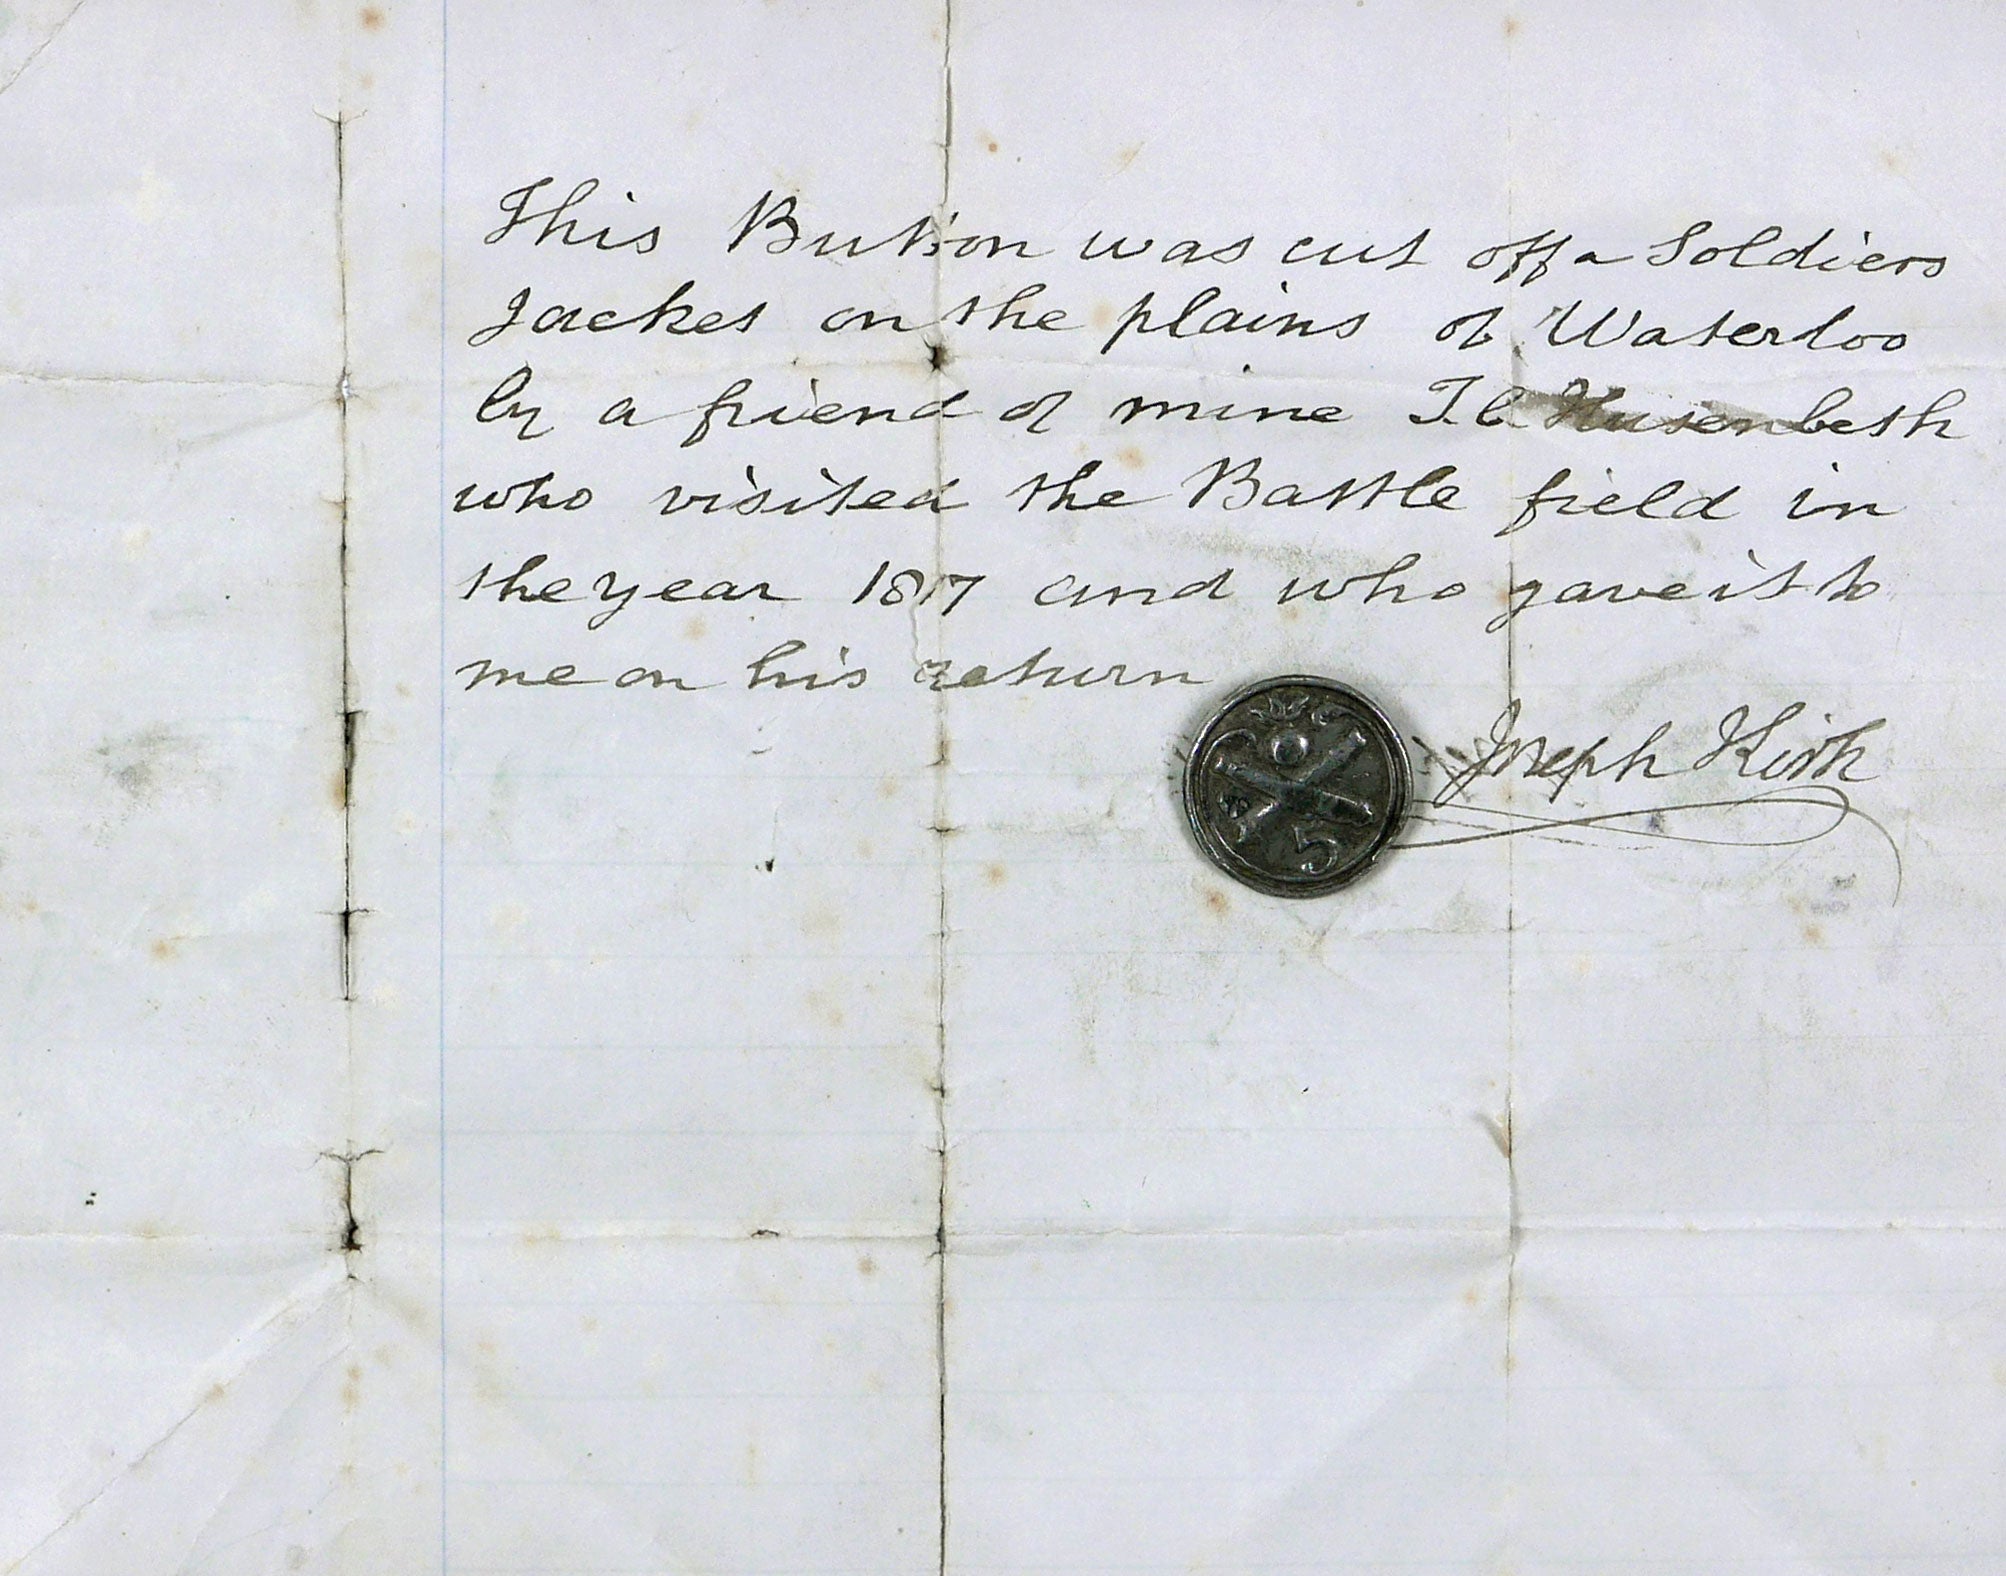 This Button was cut off a Soldiers
Jacket on the plains of Waterloo
by a friend of mine T.C Husenbeth
who visited the Battle field in
the year 1817 and who gave it to
me on his return
Joseph Kirk
5